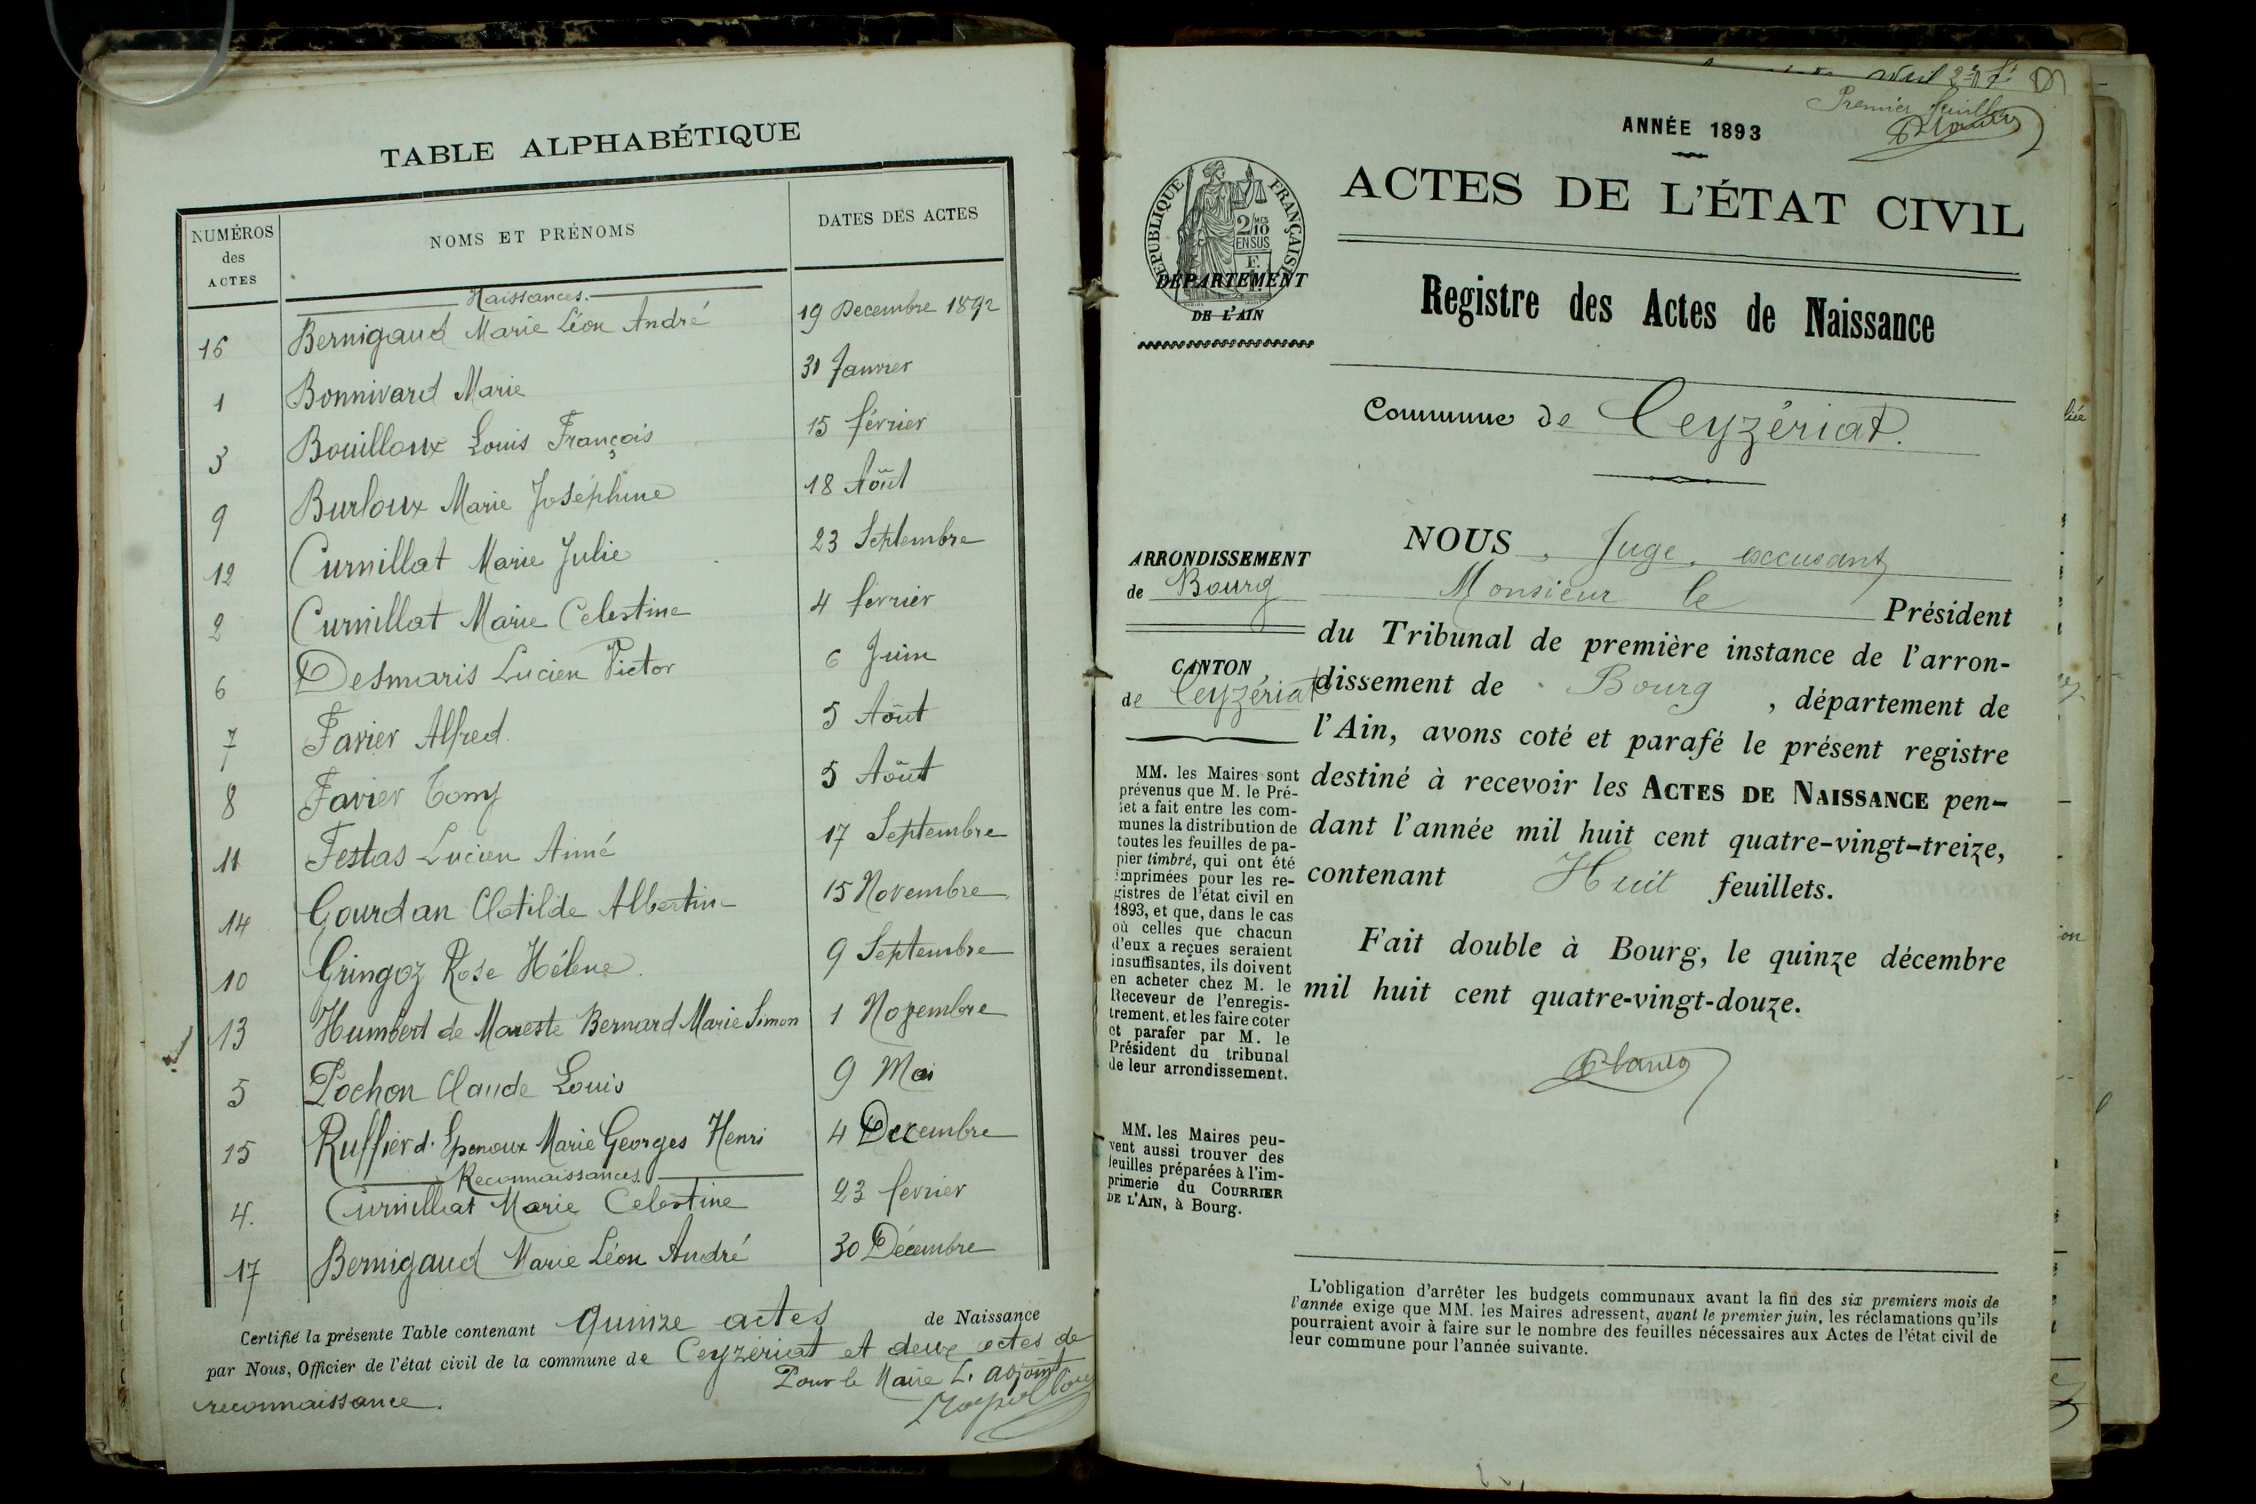 TABLE ALPHABÉTIQUE
NUMÉROS des ACTES
NOMS ET PRÉNOMS
DATES DES ACTES
Naissances.
16 Bernigaud Marie Léon André 19 Decembre 1892
1 Bonnivard Marie 31 Janvier
3 Bouilloux Louis François 15 février
9 Burloux Marie Joséphine 18 Aôut
12 Curnillat Marie Julie 23 Septembre
2 Curnillat Marie Celestine 4 fevrier
6 Desmaris Lucien Victor 6 Juin
7 Favier Alfred 5 Aôut
8 Favier Tomy 5 Aôut
11 Festas Lucien Aimé 17 Septembre
14 Gourdan Clotilde Albertine 15 Novembre
10 Gringoz Rose Hélene. 9 Septembre
13 Humbert de Moreste Bernard Marie Simon 1 Novembre
5 Pochon Claude Louis 9 Mai
15 Ruffier d'Epenoux Marie Georges Henri 4 Decembre
Reconnaissances.
4. Curnillat Marie Celestine 23 fevrier
17 Bernigaud Marie Léon André 30 Décembre
Certifié la présente Table contenant quinze actes de Naissance
par Nous, Officier de l'état civil de la commune de Ceyzériat et deux actes de
reconnaissance.
Pour le Maire L. adjoint
Premier feuillet
ANNÉE 1893
ACTES DE L'ÉTAT CIVIL
RÉPUBLIQUE FRANÇAISE
2/10 MES
EN SUS
DÉPARTEMENT
DE L'AIN
Registre des Actes de Naissance
Commune de Ceyzériat.
ARRONDISSEMENT
de Bourg
CANTON
de Ceyzériat
MM. les Maires sont
prévenus que M. le Pré-
fet a fait entre les com-
munes la distribution de
toutes les feuilles de pa-
pier timbré, qui ont été
imprimées pour les re-
gistres de l'état civil en
1893, et que, dans le cas
où celles que chacun
d'eux a reçues seraient
insuffisantes, ils doivent
en acheter chez M. le
Receveur de l'enregis-
trement, et les faire coter
et parafer par M. le
Président du tribunal
de leur arrondissement.
MM. les Maires peu-
vent aussi trouver des
feuilles préparées à l'im-
primerie du COURRIER
DE L'AIN, à Bourg.
NOUS, Juge, excusant
Monsieur le Président
du Tribunal de première instance de l'arron-
dissement de Bourg, département de
l'Ain, avons coté et parafé le présent registre
destiné à recevoir les ACTES DE NAISSANCE pen-
dant l'année mil huit cent quatre-vingt-treize,
contenant Huit feuillets.
Fait double à Bourg, le quinze décembre
mil huit cent quatre-vingt-douze.
L'obligation d'arrêter les budgets communaux avant la fin des six premiers mois de
l'année exige que MM. les Maires adressent, avant le premier juin, les réclamations qu'ils
pourraient avoir à faire sur le nombre des feuilles nécessaires aux Actes de l'état civil de
leur commune pour l'année suivante.